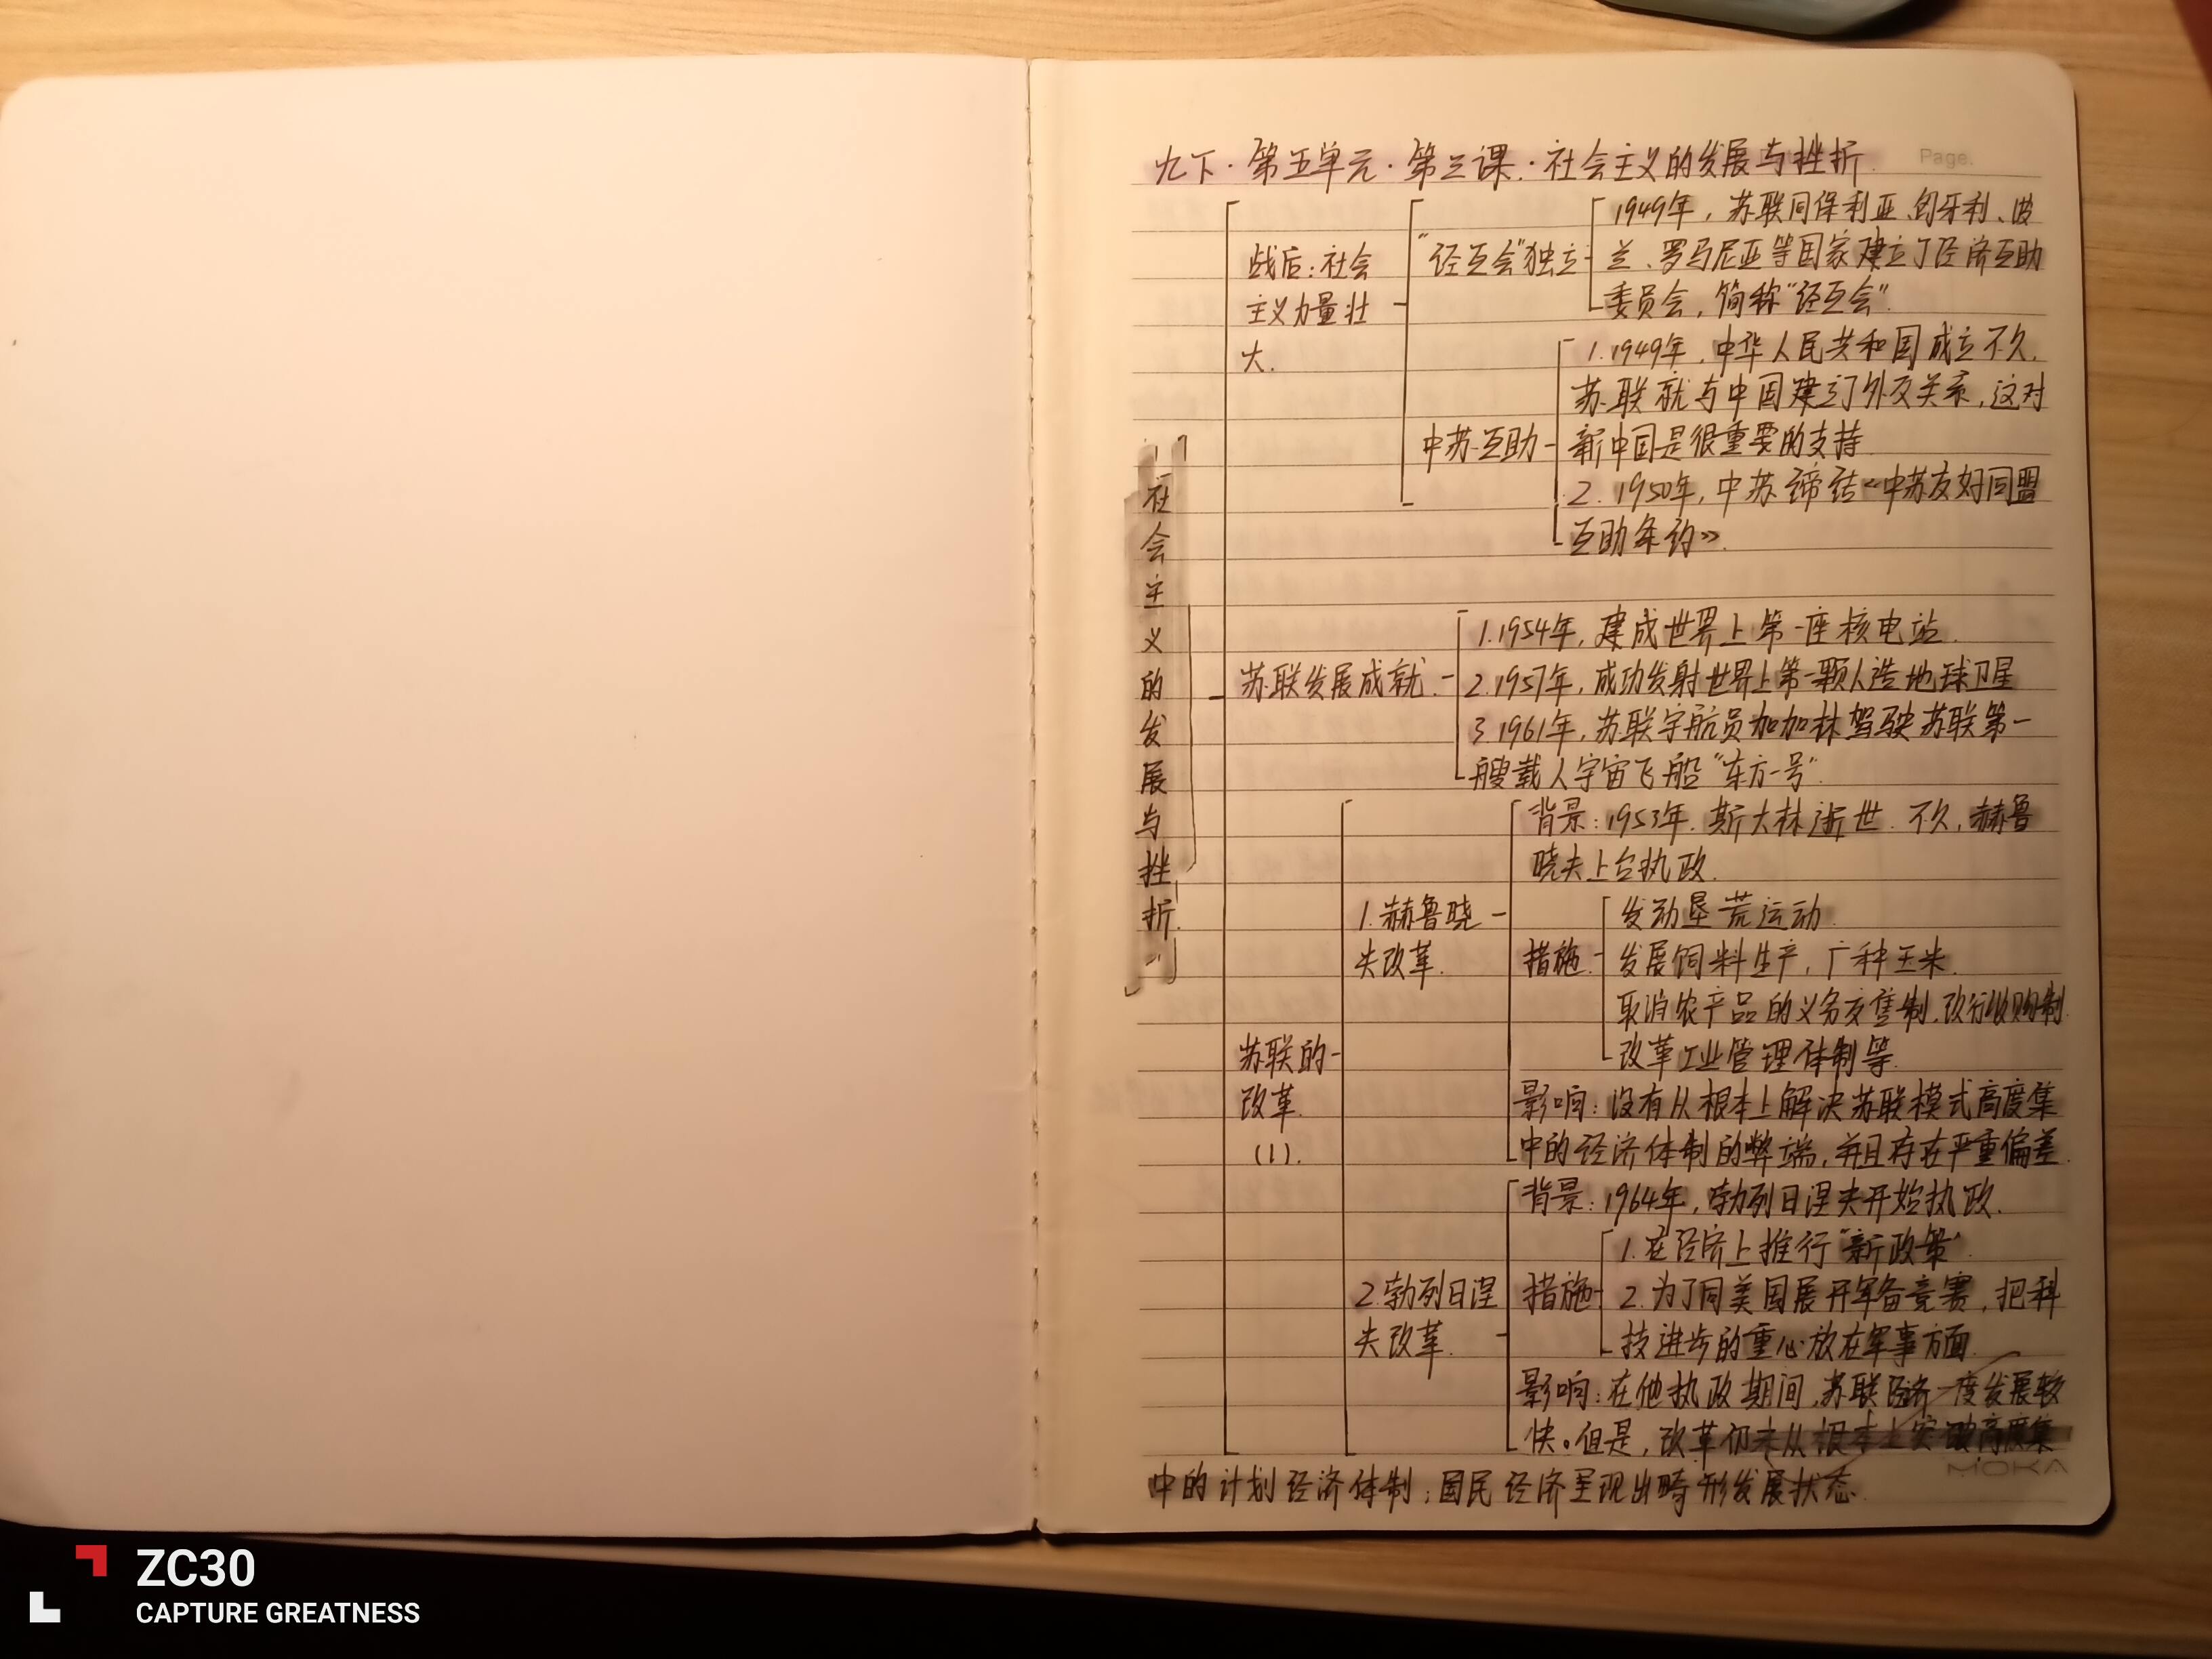 Page.
九下·第五单元·第三课·社会主义的发展与挫折
社会主义的发展与挫折
战后:社会
主义力量壮
大.
"经互会"独立
1949年,苏联同保利亚、匈牙利、波
兰、罗马尼亚等国家建立了经济互助
委员会,简称"经互会".
中苏互助
1.1949年,中华人民共和国成立不久,
苏联就与中国建立了外交关系,这对
新中国是很重要的支持
2.1950年,中苏缔结《中苏友好同盟
互助条约》.
苏联发展成就.
1.1954年,建成世界上第一座核电站.
2.1957年,成功发射世界上第一颗人造地球卫星
3.1961年,苏联宇航员加加林驾驶苏联第一
艘载人宇宙飞船"东方一号".
苏联的
改革.
(1).
1.赫鲁晓
夫改革.
背景:1953年.斯大林逝世.不久,赫鲁
晓夫上台执政.
措施.
发动垦荒运动.
发展饲料生产,广种玉米.
取消农产品的义务交售制,改行收购制
改革工业管理体制等.
影响:没有从根本上解决苏联模式高度集
中的经济体制的弊端,并且存在严重偏差.
2.勃列日涅
夫改革.
背景:1964年,勃列日涅夫开始执政.
措施
1.在经济上推行"新政策"
2.为了同美国展开军备竞赛,把科
技进步的重心放在军事方面.
影响:在他执政期间,苏联经济一度发展较
快。但是,改革仍未从根本上突破高度集
中的计划经济体制;国民经济呈现出畸形发展状态.
MOKA
ZC30
CAPTURE GREATNESS